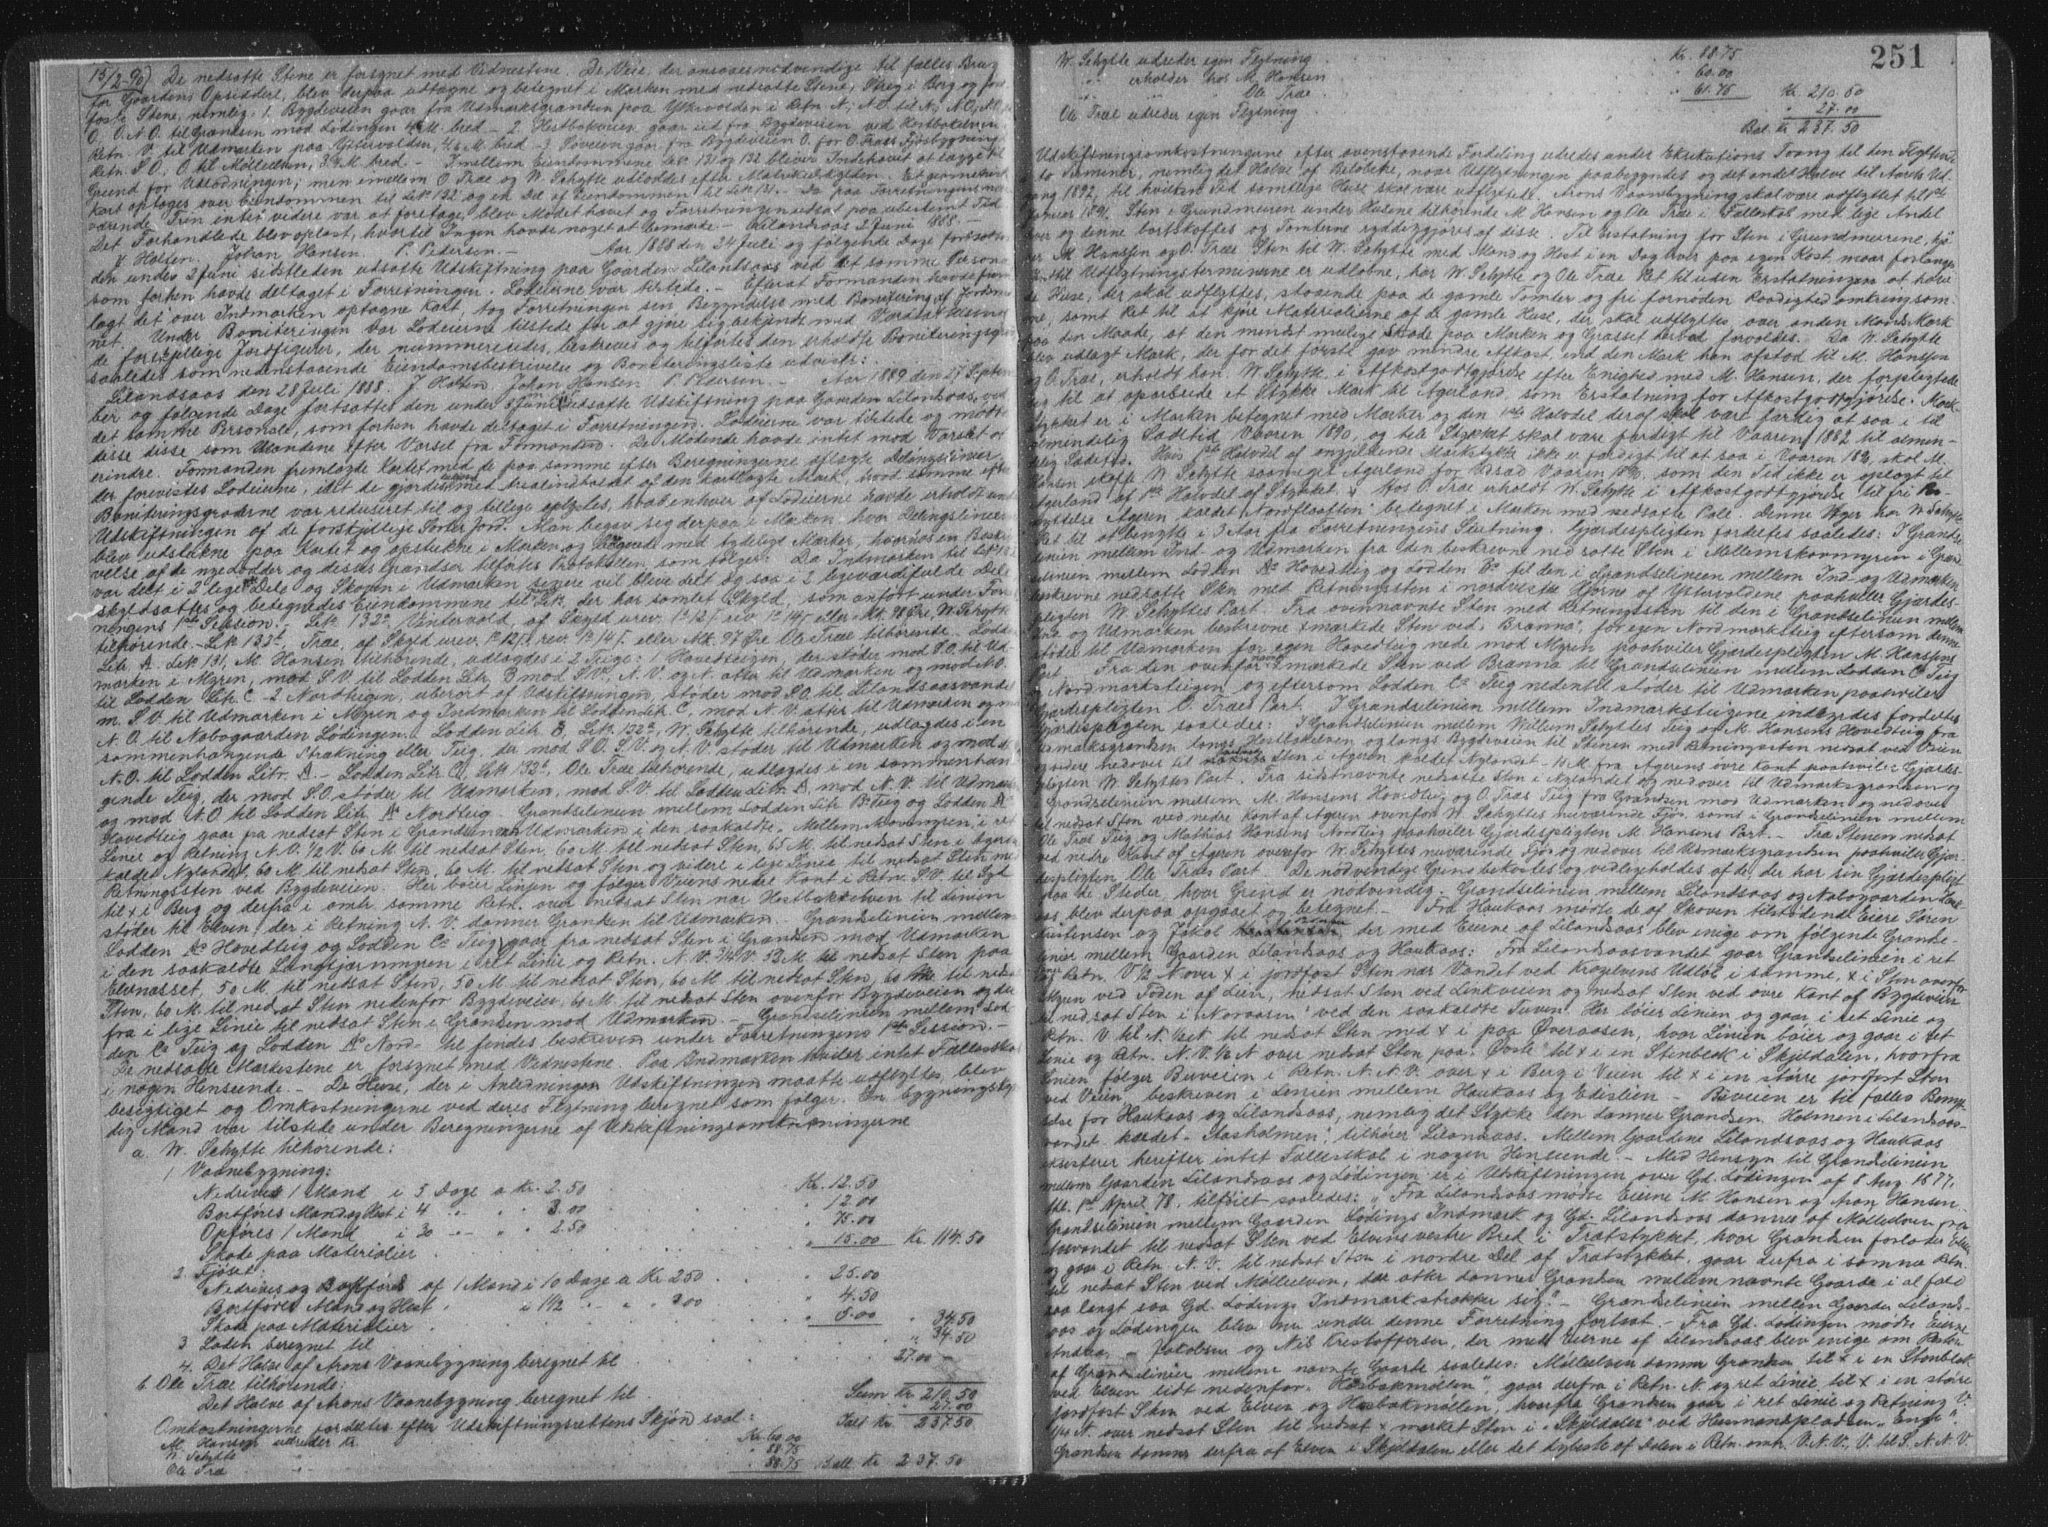 15/2-90) De nedsatte Stene er forsynet med Vidnestene. De Veie, der ansaaes nødvendige til fælles Brug
for Gaardens Opsiddere, blev derpaa udtagne og betegnet i Marken med nedsatte Stene, i Berg og jord-
faste Stene, nemlig: 1. Bygdeveien gaar fra Udmarksgrændsen paa i Retn. N., N.O. til N.,
O. O.N.O. til Grændsen mod Lødingen M. bred - 2. Hestbakveien gaar ud fra Bygdeveien ved Hestbakelven
Retn. V. til Udmarken paa M. bred - 3. gaar fra Bygdeveien O. for O. Træs Fjøsbygning
Retn. S.O., O. til Mølleelven, M. bred. - Imellem Eiendommene L.No 131 og 132 bliver Indehavet at lægge til
Grund for Udlodningen; men imellem O. Træ og W. Schytte udloddes efter Matrikelskylden. Et geometrisk
kart optages over Eiendommen til L.No 132 og en Del af Eiendommen til L.No 131. Da paa Forretningens nu-
værende Trin intet videre var at foretage, blev Mødet hævet og Forretningen udsat paa ubestemt Tid
Det Forhandlede blev oplæst, hvortil Ingen havde noget at bemærke. - Lilandsaas 2 Juni 1888. -
J. Holsen. Johan Hansen. P. Pedersen. - Aar 1888 den 24 Juli og følgende Dage fortsattes
den under 2 Juni sidstleden udsatte Udskiftning paa Gaarden Lilandsaas ved det samme Personale
som forhen havde deltaget i Forretningen. Lodeierne var tilstede. - Efterat Formanden havde frem-
lagt det over Indmarken optagne Kart, tog Forretningen sin Begyndelse med Bonitering af Jords-
net. Under Boniteringen var Lodeierne tilstede for at gjøre sig bekjendt med Værdiansættelsen
de forskjellige Jordfigurer, der nummereredes, beskreves og tilførtes den erholdte Boniteringsgrad
saaledes som nedenstaaende Eiendomsbeskrivelse og Boniteringsliste udviste:
Lilandsaas den 28 Juli 1888. J. Holsen. Johan Hansen. P. Pedersen. - Aar 1889 den 27 Septem-
ber og følgende Dage fortsattes den under udsatte Udskiftning paa Gaarden Lilandsaas ved
det samme Personale, som forhen havde deltaget i Forretningen. Lodeierne var tilstede og mødte
disse efter Varsel fra Formanden. De Mødende havde intet mod Varslet at
erindre. Formanden fremlagde Kartet med de paa samme efter Beregningerne aflagte Delingslinier
der forevistes Lodeierne, idet de gjordes bekjendt med Arealindholdet af den kartlagte Mark, hvad samme efter
Boniteringsgraderne var reduceret til og tillige oplystes, hvad enhver af Lodeierne havde erholdt ved
Udskiftningen af de forskjellige Sorter Jord. Man begav sig derpaa i Marken, hvor Delingslinierne
blev udstukne paa Kartet og opstukne i Marken og lagdes med tydelige Mærker, hvorhos en Beskri-
velse af de nye Lodder og disses Grændser tilførtes Protokollen, som følger: Da Indmarken til L.No 132
var delt i 2 lige Dele og Skoven i Udmarken senere vil blive delt og saa i 2 ligeværdifulde Dele
skyldsattes og betegnedes Eiendommene til L.No der har samlet Skyld, som anført under For-
ningens 1ste Session. - L.No 132a Vintervold, af Skyld urev. rev. eller Mk. 98 Øre, W. Schytte
tilhørende. - L.No 132b Træ, af Skyld urev. rev. eller Mk. 97 Øre Ole Træ tilhørende. - Lodden
Litr. A. L.No 131, M. Hansen tilhørende, udlagdes i 2 Teige: 1 Hovedteigen, der støder mod S.O. til Ud-
marken i Myren, mod S.V. til Lodden Litr. B mod S.V., N.V. og N. atter til Udmarken og mod N.O.
til Lodden Litr. C - 2 Nordteigen, uberørt af Udskiftningen, støder mod S.O. til Lilandsaasvandet
m. S.V. til Udmarken i Myren og Indmarken til Lodden Litr. C, mod N.V. atter til Udmarken og mod
N.O. til Nabogaarden Lødingen. - Lodden Litr. B, L.No 132a, W. Schytte tilhørende, udlagdes i en
sammenhængende Strækning eller Teig, der mod S.O. S.V. og N.V. støder til Udmarken og mod
N.O. til Lodden Litr. A. - Lodden Litr. C, L.No 132b, Ole Træ tilhørende, udlagdes i en sammenhæn-
gende Teig, der mod S.O. støder til Udmarken, mod S.V. til Lodden Litr. A, mod N.V. til Udmarken
og mod N.O. til Lodden Litr. A's Nordteig. Grændselinien mellem Lodden Litr. B's Teig og Lodden A's
Hovedteig gaar fra nedsat Sten i Grændsen mod Udmarken i den saakaldte „Mellemskovmyren" i ret
Linie og Retning N.V. 1/2 V. 60 M. til nedsat Sten, 60 M. til nedsat Sten, 65 M. til nedsat Sten i Ageren
kaldet Nylandet, 60 M. til nedsat Sten, 60 M. til nedsat Sten og videre i lige Linie til nedsat Sten med
Retningssten ved Bygdeveien. Her bøier Linien og følger Veiens nedre Kant i Retn. S.V. til Syd
til x i Berg og derfra i omtr. samme Retn. over nedsat Sten nær Hestbakkelven til Linien
støder til Elven, der i Retning N.V. danner Grænsen til Udmarken. - Grændselinien mellem
Lodden A's Hovedteig og Lodden C's Teig gaar fra nedsat Sten i Grænsen mod Udmarken
i den saakaldte Langtjernmyren i ret Linie og Retn. N.V. 1/4 V. 53 M. til nedsat Sten paa
Elvnæsset, 50 M. til nedsat Sten, 50 M. til nedsat Sten, 60 M. til nedsat Sten, 60 M. til nedsat
Sten, 60 M. til nedsat Sten nedenfor Bygdeveien, 60 M. til nedsat Sten ovenfor Bygdeveien og der-
fra i lige Linie til nedsat Sten i Grændsen mod Udmarken. - Grændselinien mellem Lod-
den C's Teig og Lodden A's Nord- til fjendes beskreven under Forretningens 1ste Session. -
De nedsatte Mærkestene er forsynet med Vidnestene. Paa Indmarken hviler intet Fællesskab
i nogen Henseende. - De Huse, der i Anledningen Udskiftningen maatte udflyttes, blev
besigtiget og Omkostningerne ved deres Flytning beregnet som følger. En bygningskyn-
dig Mand var tilstede under Beregningerne af Udskiftningsomkostningerne
a. W. Schytte tilhørende:
1 Vaanebygning:
Nedrives 1 Mand i 5 Dage a Kr. 2.50 Kr. 12.50
Bortføres Mand og Hest i 4 " " 3.00 " 12.00
Opføres 1 Mand i 30 " " 2.50 " 75.00
Skade paa Materialier " 15.00 Kr. 114.50
2. Fjøset:
Nedrives og Bortføres af 1 Mand i 10 Dage a Kr. 2.50 " 25.00
Bortføres Mand og Hest i 1 1/2 " " 3.00 " 4.50
Skade paa Materialier " 5.00 " 34.50
3 Laden beregnet til " 34.50
4. Det Halve af Arons Vaanebygning beregnet til 27.00
b. Ole Træ tilhørende: Sum Kr. 210.50
Det Halve af Arons Vaanebygning beregnet til " 27.00
Omkostningerne fordeltes efter Udskiftningsrettens Skjøn saal: Ialt Kr. 237.50
M. Hansen udreder Kr. Kr. 60.00
W. Schytte " 88.75
Ole Træ " 88.75 Ialt Kr. 237.50
251
W. Schytte udreder egen Flytning Kr. 88.75
" erholder hos M. Hansen " 60.00
" " Ole Træ " 61.75 Kr. 210.50
Ole Træ udreder egen Flytning " 27.00
Bal. Kr. 237.50
Udskiftningsomkostningerne efter ovenstaaende Fordeling udredes under Eksekutions Tvang til den Flyttende
to Terminer, nemlig det Halve af Beløbene, naar Udflytningen paabegyndes og det andet Halve til Aarets Ud-
gang 1892, til hvilken Tid samtlige Huse skal være udflyttede. Arons Vaanebygning skal være udflyttet til 1ste
Januar 1891. Sten i Grundmuren under Husene tilhørende M. Hansen og Ole Træ i Fællesskab med lige Andel
hver og denne bortskaffes og Tomterne ryddiggjøres af disse. Til Erstatning for Sten i Grundmurene, kjø-
rer M. Hansen og O. Træ Sten til W. Schytte med Mand og Hest i en Dag hver paa egen Kost, naar forlanges
Indtil Udflytningsterminerne er udløbne, har W. Schytte og Ole Træ Ret til uden Erstatning at have
de Huse, der skal udflyttes, staaende paa de gamle Tomter og fri fornøden Raadighed omkring sam-
me, samt Ret til at kjøre Materialierne af de gamle Huse, der skal udflyttes, over anden Mands Mark
paa den Maade, at den mindst mulige Skade paa Marken og Græsset derved forvoldes. Da W. Schytte
blev udlagt Mark, der for det første gav mindre Afkast, end den Mark han afstod til M. Hansen
og O. Træ, erholdt han, W. Schytte, i Afkastgodtgjørelse efter Enighed med M. Hansen, der forpligtede
sig til at oparbeide et Stykke Mark til Agerland, som Erstatning for Afkastgodtgjørelse. Mark-
stykket er i Marken betegnet med Mærker og den 1ste Halvdel deraf skal være færdig at saa i til
almindelig Sædetid Vaaren 1890, og hele Stykket skal være færdigt til Vaaren 1892 til almin-
delig Sædetid. Hvis 1ste Halvdel af omhandlede Markstykke ikke er færdigt til at saa i Vaaren 1890, skal M.
Hansen skaffe W. Schytte saameget Agerland for Udsæd Vaaren 1890, som den Tid ikke er oplagt til
Agerland af 1ste Halvdel af Stykket. Hos O. Træ erholdt W. Schytte i Afkastgodtgjørelse til fri Be-
nyttelse Ageren, kaldet Nordflaaften, betegnet i Marken med nedsatte Pæle. Denne Ager har W. Schytte
Ret til at benytte i 3 Aar fra Forretningens Slutning. Gjærdespligten fordeltes saaledes: I Grændse-
linien mellem Ind- og Udmarken fra den beskrevne nedsatte Sten i Mellemskovmyren i Græn-
selinien mellem Lodden A's Hovedteig og Lodden B's til den i Grændselinien mellem Ind- og Udmarken
beskrevne nedsatte Sten med Retningssten i nordvestre Hjørne af Ystervoldene paahviler Gjærdes-
pligten W. Schyttes Part. Fra ovennævnte Sten med Retningssten til den i Grændselinien mellem
Ind- og Udmarken beskrevne x mærkede Sten ved „Branna", for egen Nordmarksteig eftersom denne
støder til Udmarken for egen Hovedteig nede mod Myren paahviler Gjærdespligten M. Hansens
Part. Fra den ovenfor nævnt x mærkede Sten ved Branna til Grændselinien mellem Lodden C's Teig
Nordmarksteigen, og eftersom Lodden C's Teig nedentil støder til Udmarken paahviler
Gjærdespligten O. Træs Part. I Grændselinien mellem Indmarksteigene indbyrdes fordeltes
Gjærdespligten saaledes: I Grændselinien mellem Willum Schyttes Teig og M. Hansens Hovedteig fra
Udmarksgrændsen langs Hestbakelven og langs Bygdeveien til Stenen med Retningssten nedsat ved Veien
og videre nedover til Sten i Ageren kaldet Nylandet - 10 M. fra Agerens øvre Kant paahviler Gjærdes-
pligten W. Schyttes Part. Fra sidstnævnte nedsatte Sten i Nylandet og nedover til Udmarksgrændsen og
Grændselinien mellem M. Hansens Hovedteig og O. Træs Teig fra Grændsen mod Udmarken og nedover
til nedsat Sten ved nedre Kant af Ageren ovenfor W. Schyttes nuværende Fjøs samt i Grændselinien mellem
Ole Træs Teig og Mathias Hansens Nordteig paahviler Gjærdespligten M. Hansens Part. - Fra Stenen nedsat
ved nedre Kant af Ageren ovenfor W. Schyttes nuværende Fjøs og nedover til Udmarksgrændsen paahviler Gjær-
despligten Ole Træs Part. De nødvendige Grinder bekostes og vedligeholdes af de, der har sin Gjærdespligt
paa de Steder, hvor Grind er nødvendig. Grændselinien mellem Lilandsaas og Nabogaarden
blev derpaa opgaaet og betegnet. - Fra Haukaas mødte de af Skoven tilstødende Eiere Søren
Kristensen og Jakob der med Eierne af Lilandsaas blev enige om følgende Grændse-
linier mellem Gaarden Lilandsaas og Haukaas: Fra Lilandsaasvandet gaar Grændselinien i ret
Linie og Retn. V 1/2 N over x i jordfast Sten nær Vandet ved Kragelvens Udløb i samme, x i Sten ovenfor
Myren ved Foden af Lien, nedsat Sten ved Linkveien og nedsat Sten ved øvre Kant af Bygdeveien
til nedsat Sten i „Noraasen" ved den saakaldte Tuven. Her bøier Linien og gaar i ret Linie og
Retn. V. til N. 1/2 N. til nedsat Sten med x i paa Øveraasen, hvor Linien bøier og gaar i ret
Linie og Retn. N.V. 1/2 N over nedsat Sten paa „Øvste" til x i en Stenbræk i Skjeldalen, hvorfra
Linien følger Buveien i Retn. N.N.V. over x i Berg i Veien til x i en større jordfast Sten
ved Veien, beskreven i Linien mellem Haukaas og Edislien - Buveien er til fælles Benyt-
telse for Haukaas og Lilandsaas, nemlig det Stykke den danner Grændsen. Holmen i Lilandsaas-
vandet, kaldet „Aasholmen", tilhører Lilandsaas. Mellem Gaardene Lilandsaas og Haukaas
eksisterer herefter intet Fællesskab i nogen Henseende. - Med Hensyn til Grændselinien
mellem Gaarden Lilandsaas og Lødingen er i Udskiftningen over Gd. Lødingen af 8 Aug. 1877,
tbl. 1ste April 78, tilført saaledes: „Fra Lilandsaas mødte Eierne M. Hansen og Aron Hansen.
Grændselinien mellem Gaarden Lødings Indmark og Gd. Lilandsaas dannes af Mølleelven fra
Aasvandet til nedsat Sten ved Elvens vestre Bred i Træstykket, hvor Grændsen forlader Elven
og gaar i Retn. N.V. til nedsat Sten i nordre Del af Træstykket, gaar derfra i samme Retn.
til nedsat Sten ved Mølleelven, der atter danner Grændsen mellem nævnte Gaarde i al fald
saa langt saa Gd. Lødings Indmark strækker sig." - Grændselinien mellem Gaarden Lilands-
aas og Lødingen blev nu under denne Forretning fortsat. - Fra Gd. Lødingen mødte Eierne
Andreas Jakobsen og Nils Kristoffersen, der med Eierne af Lilandsaas blev enige om Resten
af Grændselinien mellem nævnte Gaarde saaledes: Mølleelven danner Grændsen til x i en Stenblok
ved Elven lidt nedenfor „Hesbakmøllen", gaar derfra i Retn. N. og ret Linie til x i en større
jordfast Sten ved Elven og Hesbakmøllen, hvorfra Grændsen gaar i ret Linie og Retning V.
N. over nedsat Sten til nedsat x mærket Sten i „Skjeldalen" ved Husmandspladsen „Enge".
Grændsen dannes derfra af Elven i Skjeldalen eller det dybeste af Dalen i Retn. omtr. V.N.V., V. til N. N.V.